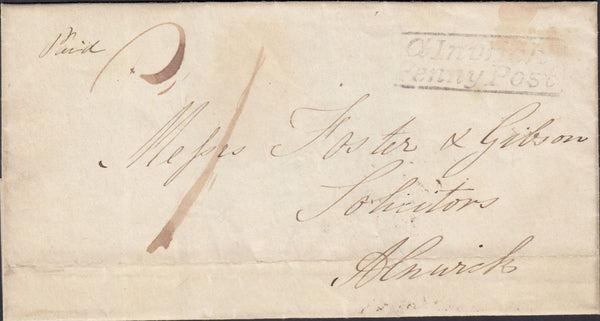 Paid
Alnwick
Penny Post
1
Messrs Foster & Gibson
Solicitors
Alnwick